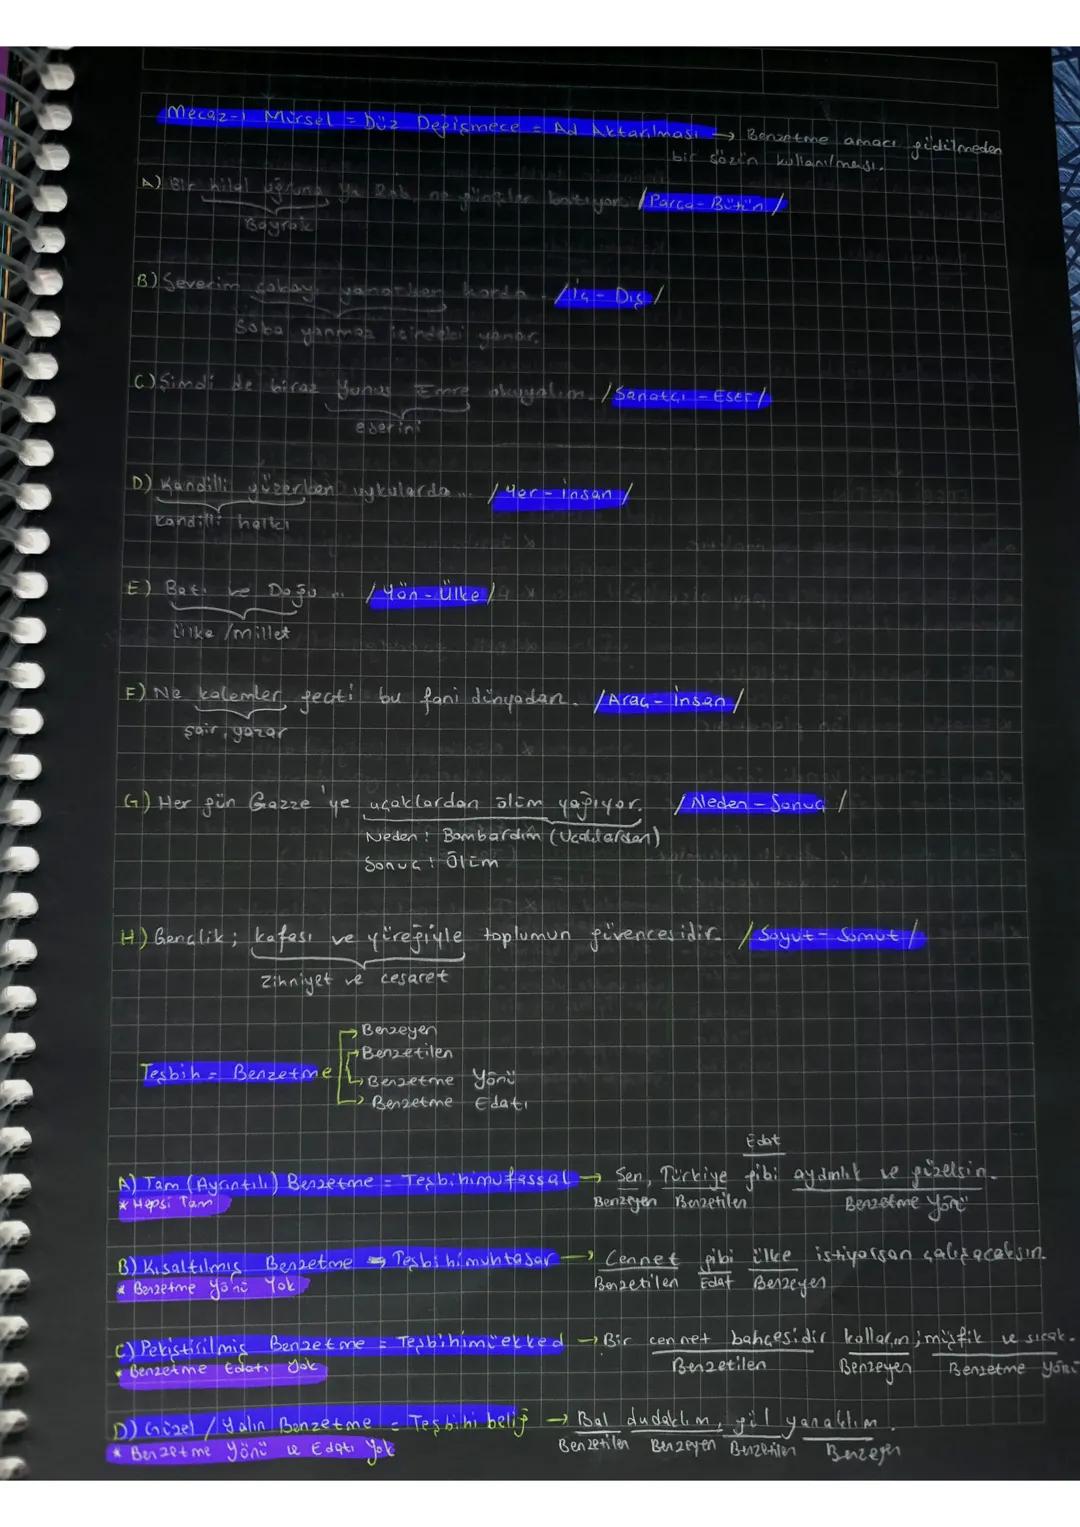 Mecaz-ı Mürsel = Düz Değişmece = Ad Aktarılması → Benzetme amacı güdülmeden
bir sözün kullanılması.
A) Bir hilal uğruna Ya Rab, ne güneşler batıyor. /Parça-Bütün/
Bayrak
B) Severim sobayı yanarken karda. /İç-Dış/
Soba yanmaz içindeki yanar.
C) Şimdi de biraz Yunus Emre okuyalım. /Sanatçı-Eser/
eserini
D) Kandilli yüzerken uykularda... /Yer-insan/
Kandilli halkı
E) Batı ve Doğu ... /Yön-Ülke/
ülke/millet
F) Ne kalemler geçti bu fani dünyadan. /Araç-İnsan/
şair, yazar
G) Her gün Gazze'ye uçaklardan ölüm yağıyor. /Neden-Sonuç/
Neden: Bombardım (Uçaklardan)
Sonuç: Ölüm
H) Gençlik; kafası ve yüreğiyle toplumun güvencesidir. /Soyut-Somut/
Zihniyet ve cesaret
Benzeyen
Benzetilen
Teşbih = Benzetme
Benzetme Yönü
Benzetme Edatı
Edat
A) Tam (Ayrıntılı) Benzetme = Teşbihimufassal → Sen, Türkiye gibi aydınlık ve güzelsin.
* Hepsi Tam Benzeyen Benzetilen Benzetme Yönü
B) Kısaltılmış Benzetme = Teşbihimuhtasar → Cennet gibi ülke istiyorsan çalışacaksın.
* Benzetme Yönü Yok Benzetilen Edat Benzeyen
C) Pekiştirilmiş Benzetme = Teşbihimüekked → Bir cennet bahçesidir kolların; müşfik ve sıcak.
* Benzetme Edatı Yok Benzetilen Benzeyen Benzetme Yönü
D) Güzel / Yalın Benzetme = Teşbihi beliğ → Bal dudaklım, gül yanaklım.
* Benzetme Yönü ve Edatı Yok Benzetilen Benzeyen Benzetilen Benzeyen